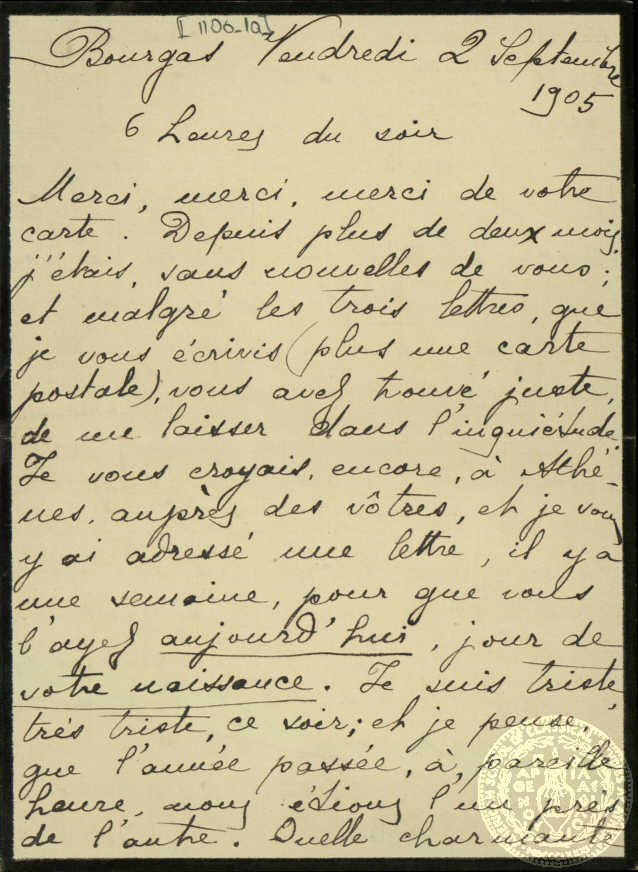 [1106-1a]
Bourgas Vendredi 2 Septembre
1905
6 heures du soir
Merci, merci, merci de votre
carte. Depuis plus de deux mois
j'étais, sans nouvelles de vous;
et malgré les trois lettres, que
je vous écrivis (plus une carte
postale), vous avez trouvé juste,
de me laisser dans l'inquiétude.
Je vous croyais, encore, à Athè-
nes, auprès des vôtres, et je vous
y ai adressé une lettre, il y a
une semaine, pour que vous
l'ayez aujourd'hui, jour de
votre naissance. Je suis triste
très triste, ce soir; et je pense,
que l'année passée, à pareille
heure, nous étions l'un près
de l'autre. Quelle charmante